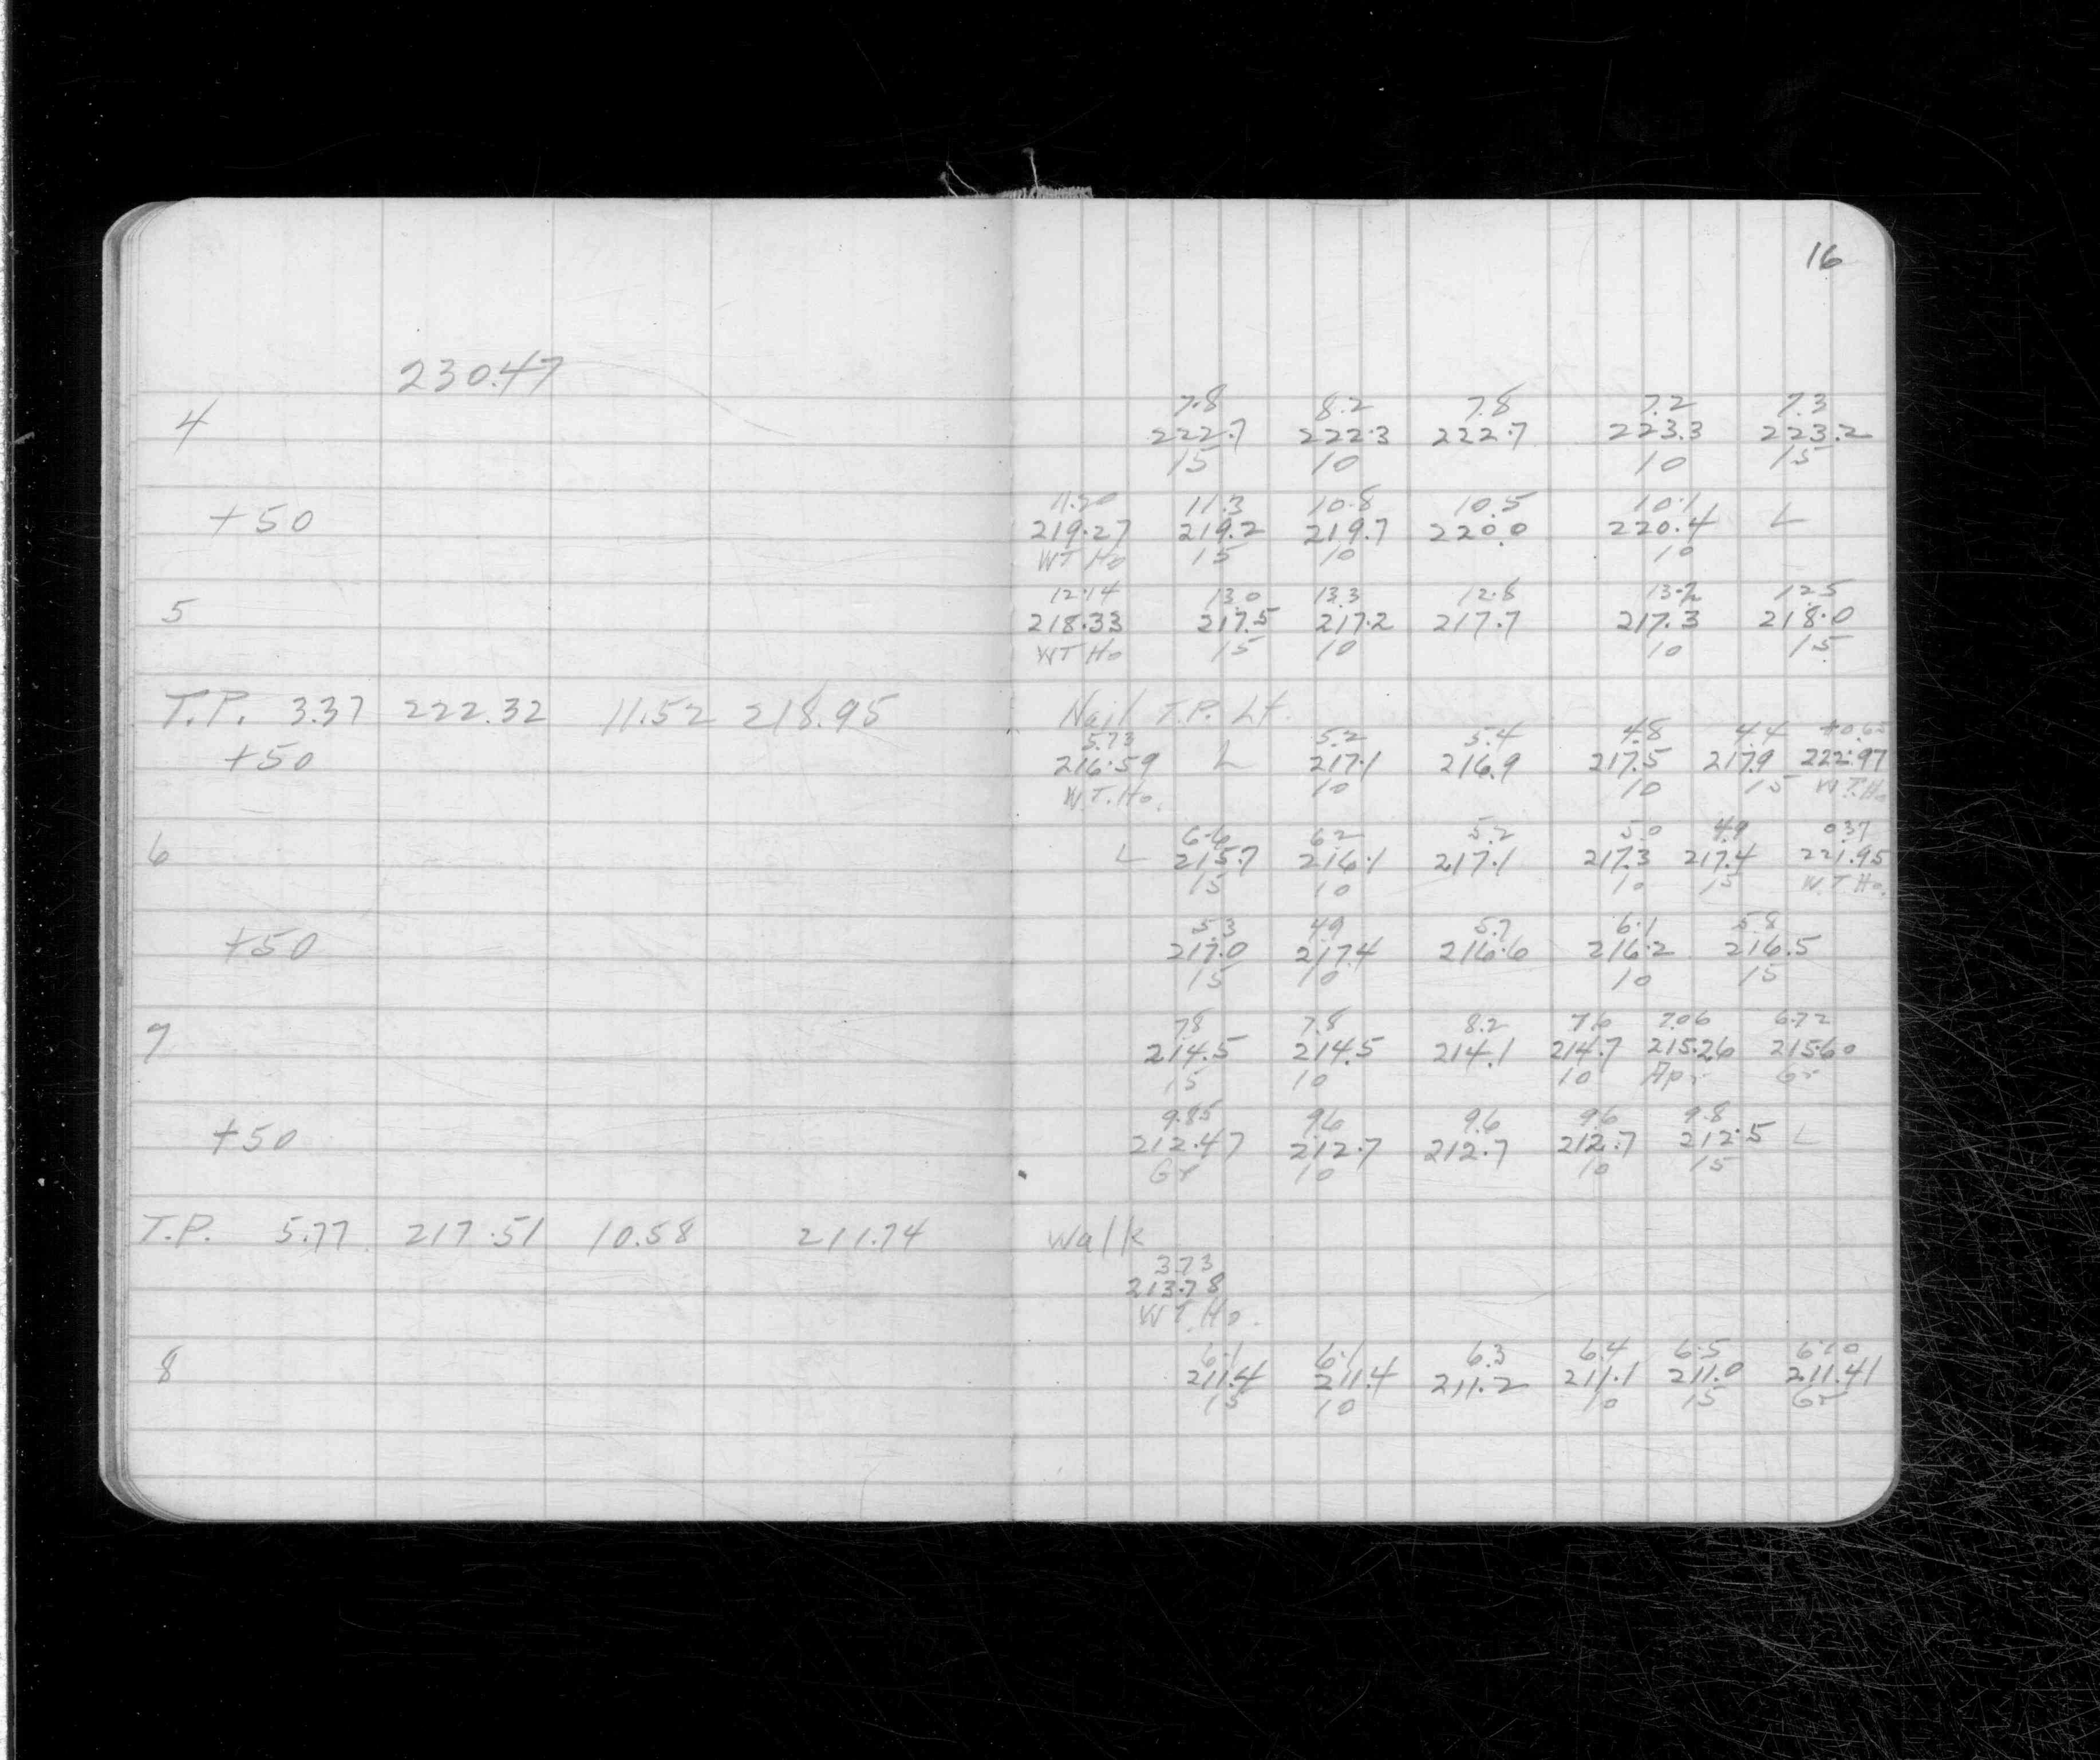 16
230.47
7.8 8.2 7.8 7.2 7.3
4 222.7 222.3 222.7 223.3 223.2
15 10 10 15
11.20 11.3 10.8 10.5 10.1
+50 219.27 219.2 219.7 220.0 220.4 L
WT Ho 15 10 10
12.14 13.0 13.3 12.8 13.2 12.5
5 218.33 217.5 217.2 217.7 217.3 218.0
WT Ho 15 10 10 15
T.P. 3.37 222.32 11.52 218.95 Nail T.P. Lt.
5.73 5.2 5.4 4.8 4.4 +0.65
+50 216.59 L 217.1 216.9 217.5 217.9 222.97
W.T.Ho. 10 10 15 W.T.Ho
6.6 6.2 5.2 5.0 4.9 0.37
6 L 215.7 216.1 217.1 217.3 217.4 221.95
15 10 10 15 W.T.Ho.
5.3 4.9 5.7 6.1 5.8
+50 217.0 217.4 216.6 216.2 216.5
15 10 10 15
7.8 7.8 8.2 7.6 7.06 6.72
7 214.5 214.5 214.1 214.7 215.26 215.60
15 10 10 Apr Gr
9.85 9.6 9.6 9.6 9.8
+50 212.47 212.7 212.7 212.7 212.5 L
Gr 10 10 15
T.P. 5.77 217.51 10.58 211.74 Walk
3.73
213.78
W.T.Ho.
6.1 6.1 6.3 6.4 6.5 6.10
8 211.4 211.4 211.2 211.1 211.0 211.41
15 10 10 15 Gr